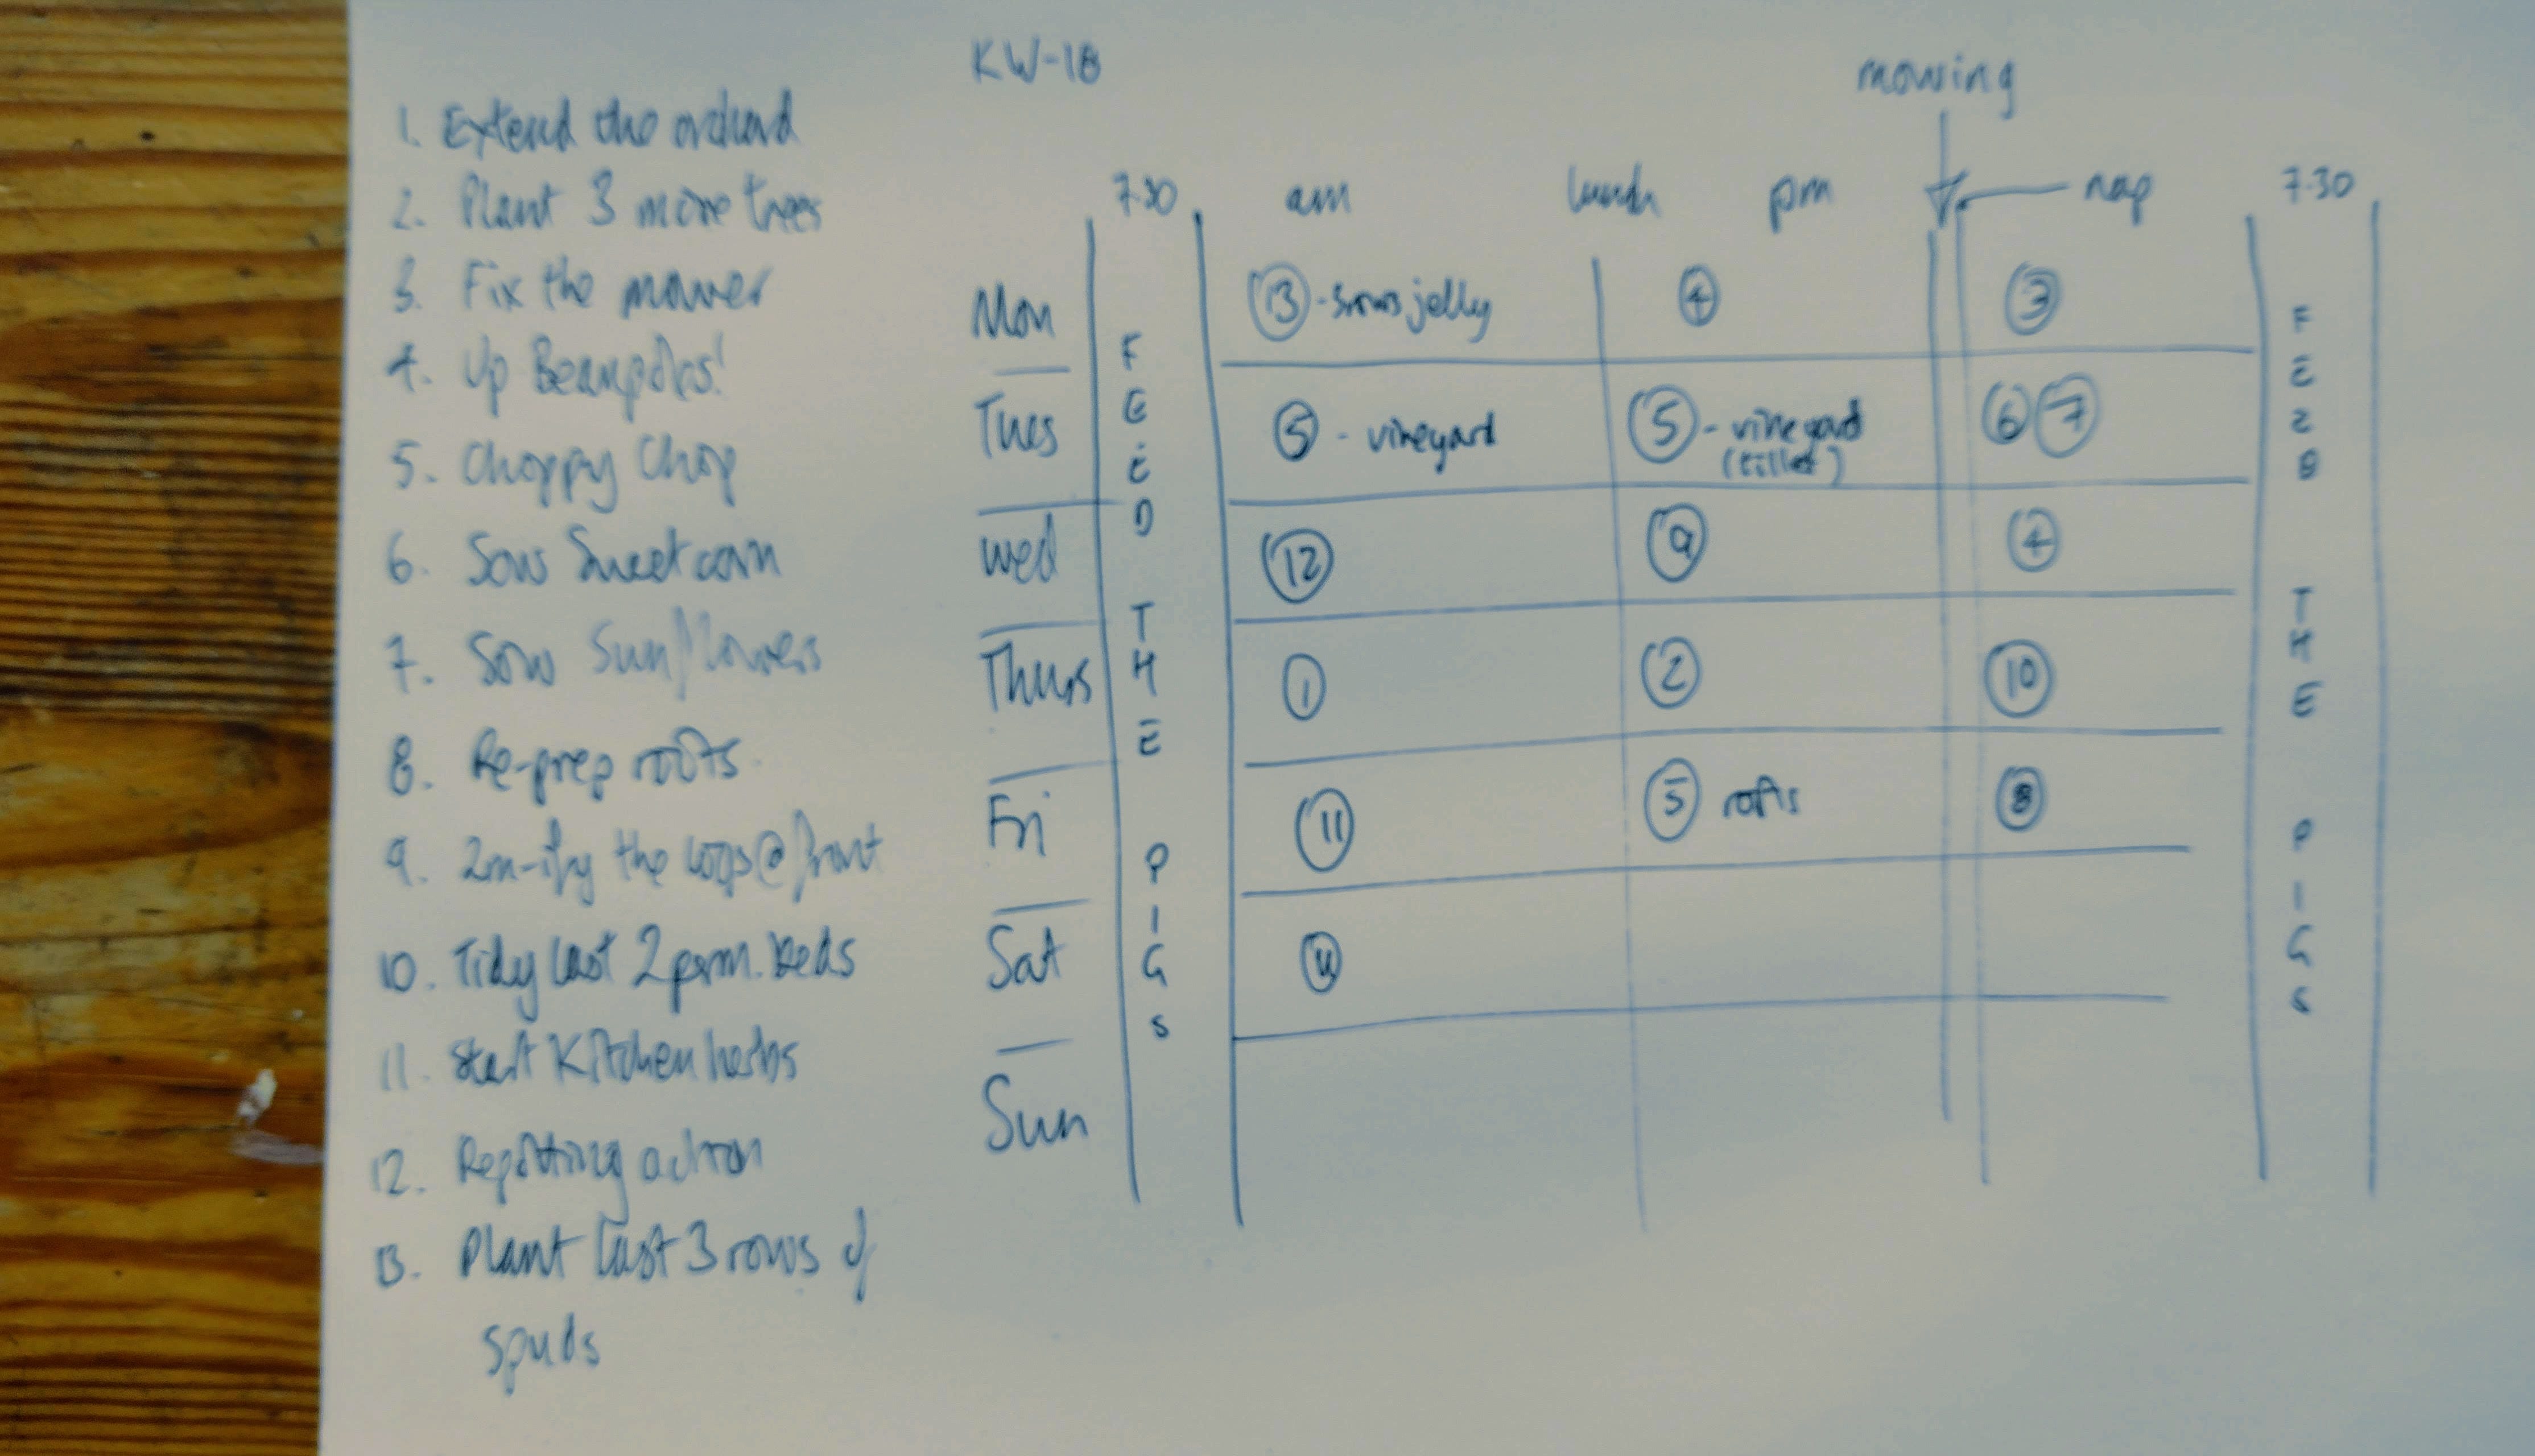 KW-18
1. Extend the orchard
2. Plant 3 more trees
3. Fix the mower
4. Up Beanpoles!
5. Choppy Chop
6. Sow Sweetcorn
7. Sow Sunflowers
8. Re-prep roots
9. 2m-ify the loops@front
10. Tidy last 2 perm. beds
11. Start Kitchen herbs
12. Repotting action
13. Plant last 3 rows of
spuds
mowing
7.30 am lunch pm nap 7.30
Mon 13 - jelly 4 3
Tues 5 - vineyard 5 - vineyard 6 7
Wed 12 9 4
Thurs 1 2 10
Fri 11 5 roots 8
Sat
Sun
FEED THE PIGS
FEED THE PIGS